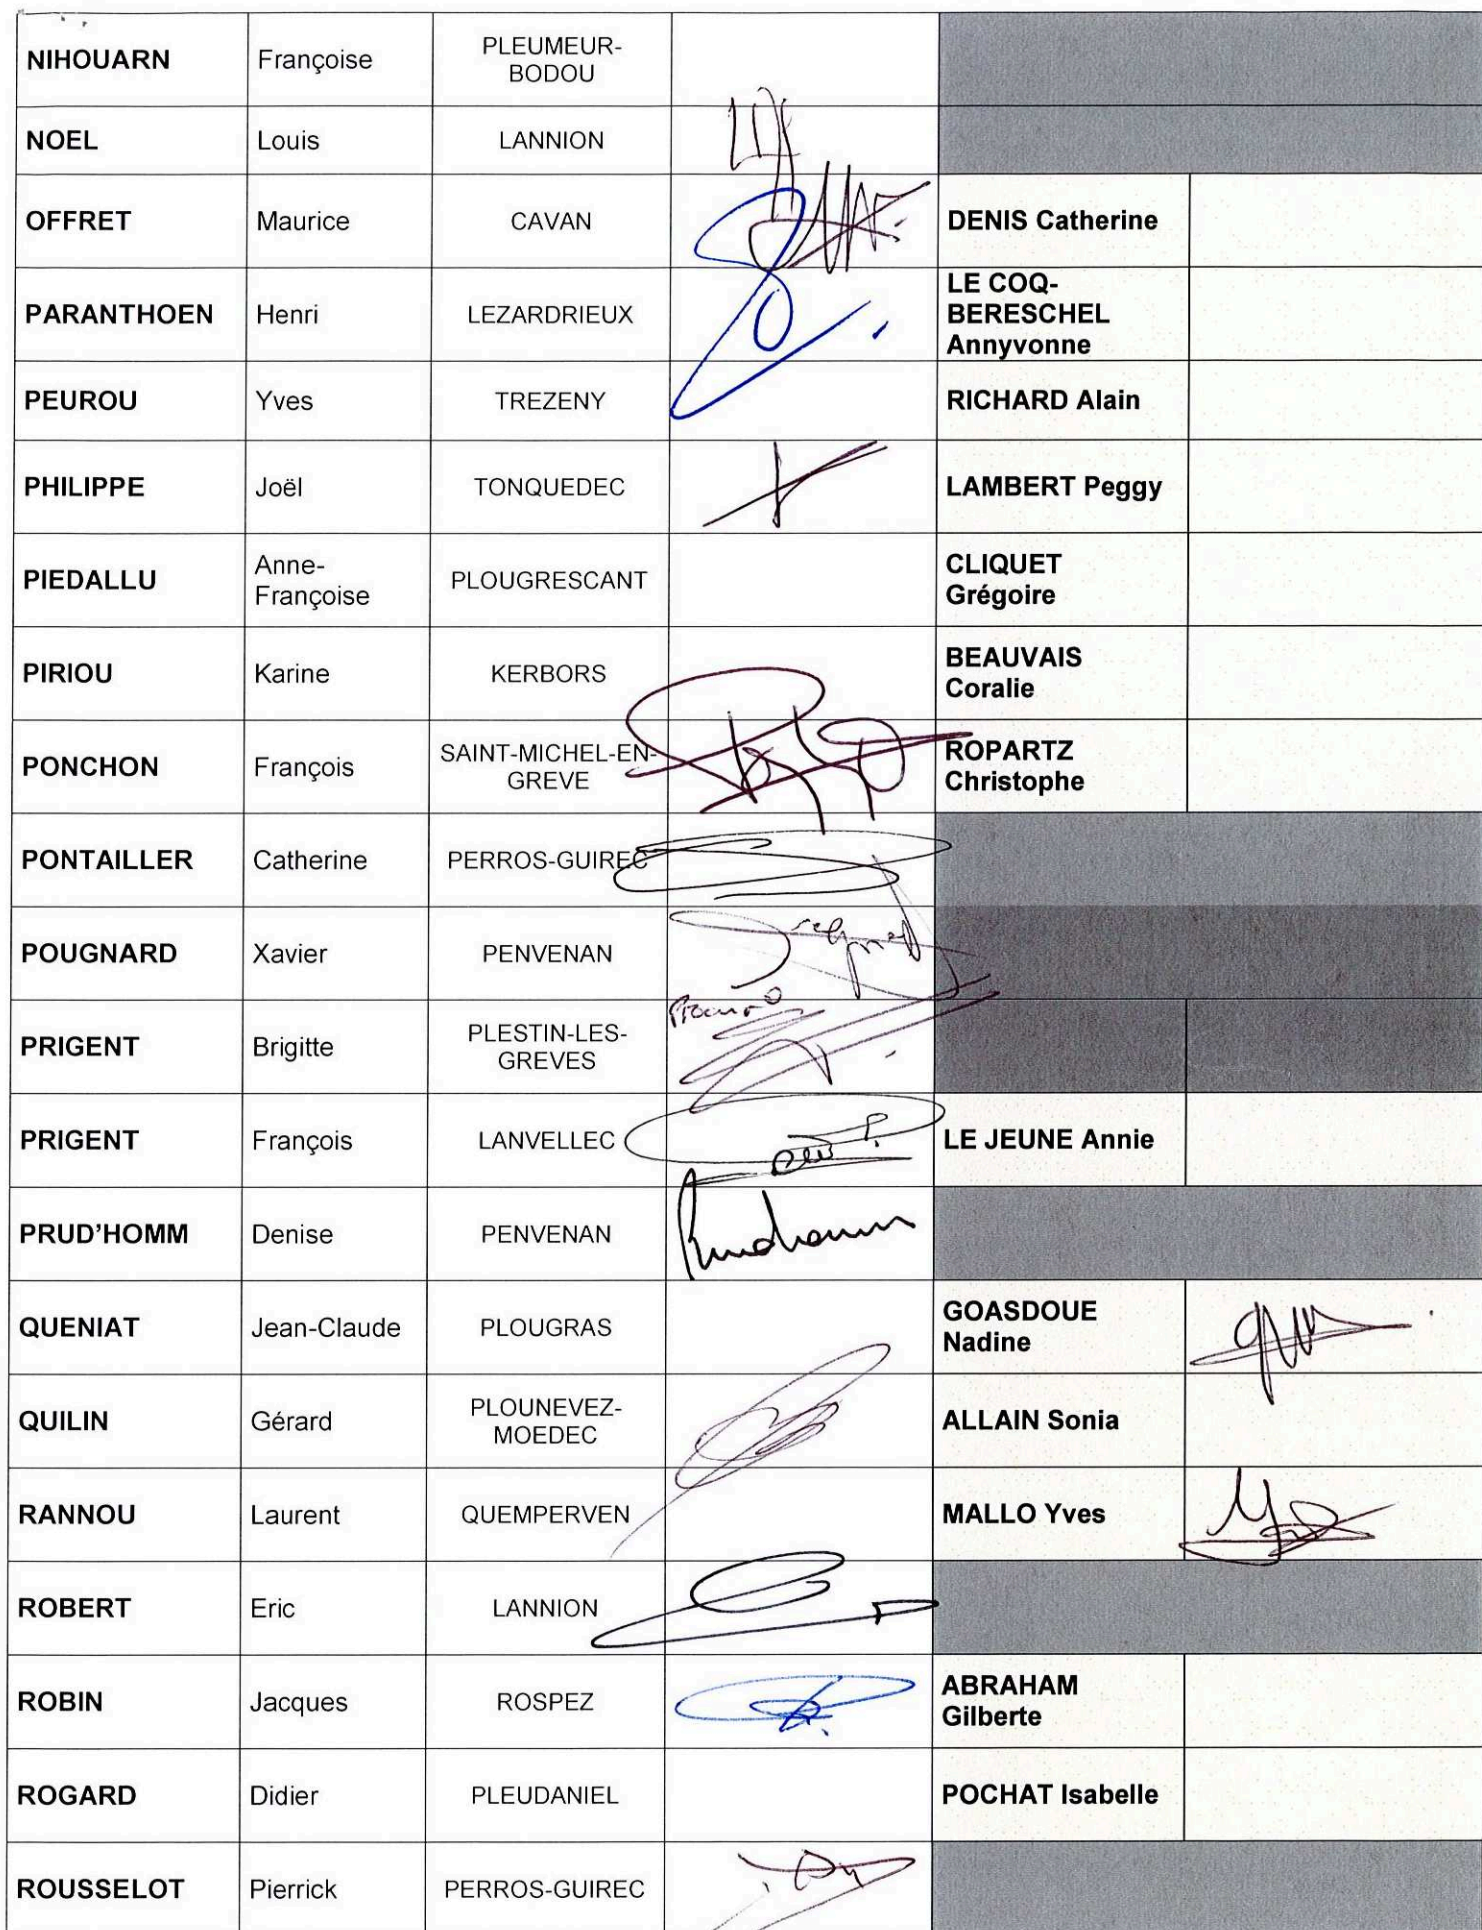 NIHOUARN Françoise PLEUMEUR-
BODOU
NOEL Louis LANNION
OFFRET Maurice CAVAN DENIS Catherine
PARANTHOEN Henri LEZARDRIEUX LE COQ-
BERESCHEL
Annyvonne
PEUROU Yves TREZENY RICHARD Alain
PHILIPPE Joël TONQUEDEC LAMBERT Peggy
PIEDALLU Anne-
Françoise PLOUGRESCANT CLIQUET
Grégoire
PIRIOU Karine KERBORS BEAUVAIS
Coralie
PONCHON François SAINT-MICHEL-EN-
GREVE ROPARTZ
Christophe
PONTAILLER Catherine PERROS-GUIREC
POUGNARD Xavier PENVENAN
PRIGENT Brigitte PLESTIN-LES-
GREVES
PRIGENT François LANVELLEC LE JEUNE Annie
PRUD'HOMM Denise PENVENAN
QUENIAT Jean-Claude PLOUGRAS GOASDOUE
Nadine
QUILIN Gérard PLOUNEVEZ-
MOEDEC ALLAIN Sonia
RANNOU Laurent QUEMPERVEN MALLO Yves
ROBERT Eric LANNION
ROBIN Jacques ROSPEZ ABRAHAM
Gilberte
ROGARD Didier PLEUDANIEL POCHAT Isabelle
ROUSSELOT Pierrick PERROS-GUIREC